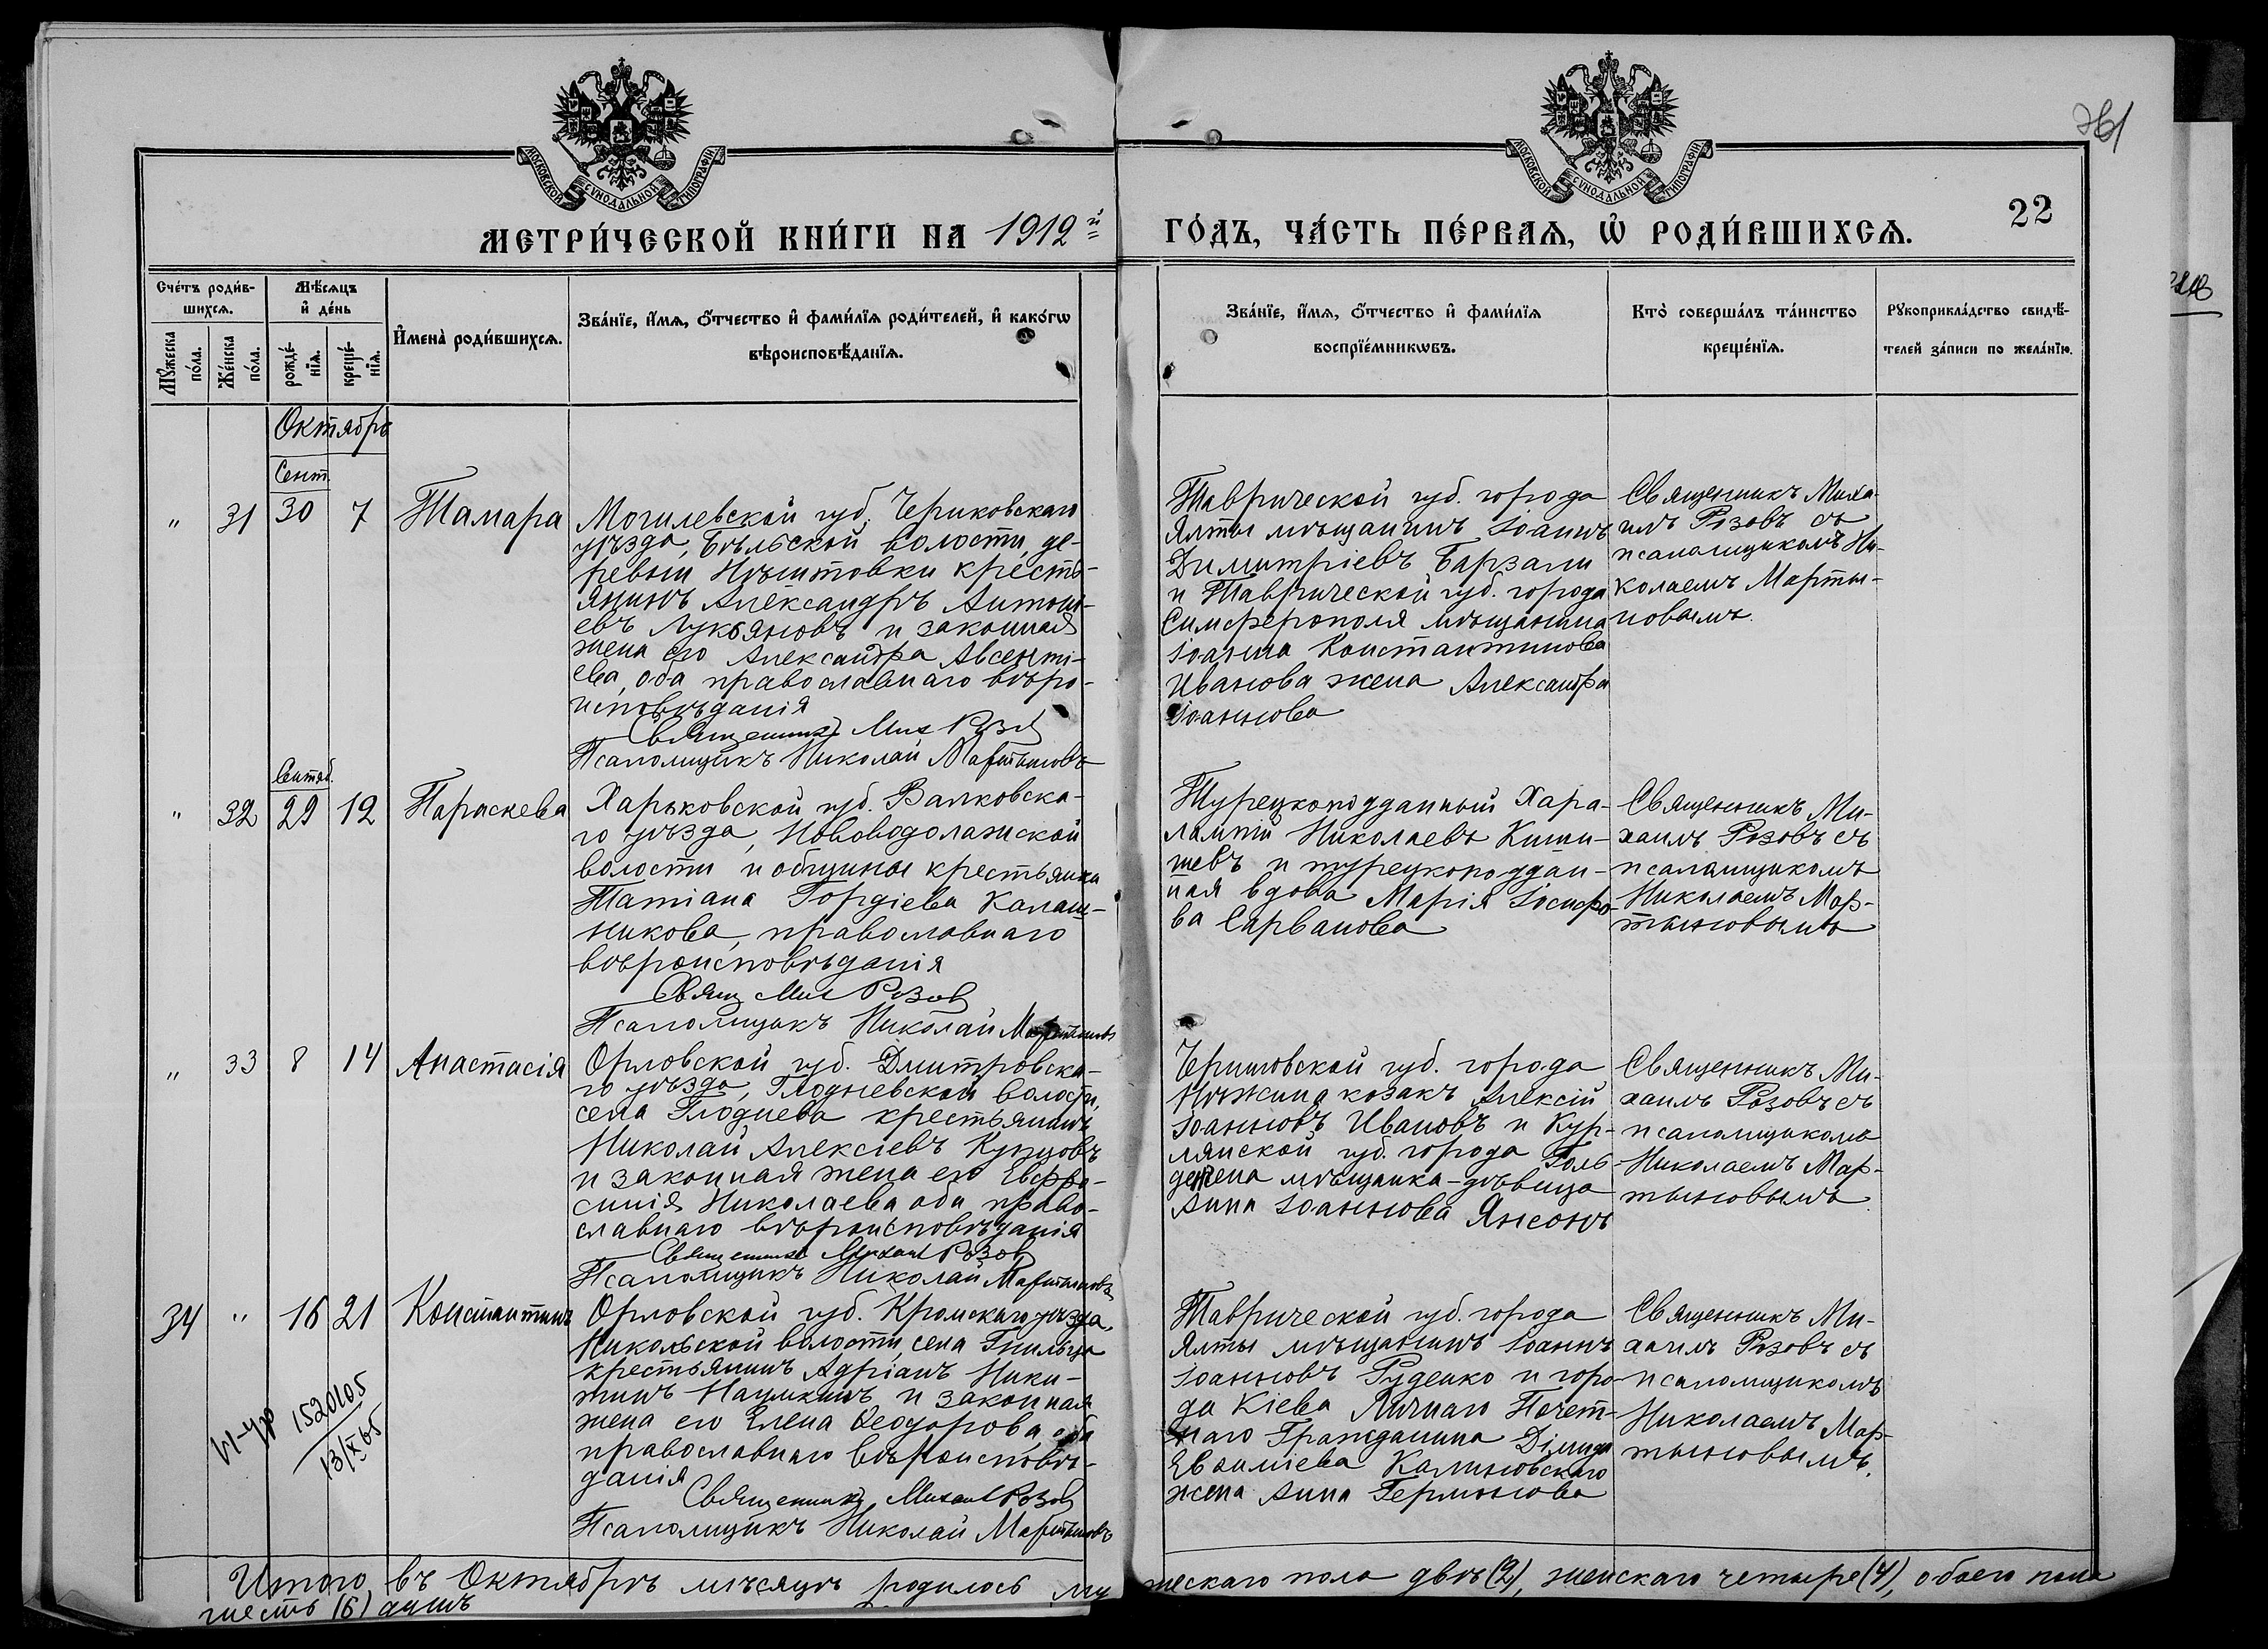 МОСКОВСКОЙ СУНОДАЛЬНОЙ ТИПОГРАФІИ
МОСКОВСКОЙ СУНОДАЛЬНОЙ ТИПОГРАФІИ
МЕТРИ́ЧЕСКОЙ КНИ́ГИ НА 1912й
ГО́ДЪ, ЧА́СТЬ ПЕ́РВАѦ, Ѡ҆ РОДИ́ВШИХСѦ.
22
Сче́тъ роди́в-
шихсѧ.
Мꙋ́жеска
по́ла.
Же́нска
по́ла.
Мѣ́сѧцъ
и҆ де́нь
рожде́-
нїѧ.
креще́-
нїѧ.
И҆мена̀ роди́вшихсѧ.
Зва́нїе, и҆́мѧ, ѻ҆́тчество и҆ фами́лїѧ роди́телей, и҆ како́гѡ
вѣроисповѣ́данїѧ.
Зва́нїе, и҆́мѧ, ѻ҆́тчество и҆ фами́лїѧ
воспрїе́мникѡвъ.
Кто̀ соверша́лъ та́инство
креще́нїѧ.
Рꙋкоприкла́дство свидѣ́-
телей за́писи по жела́нїю.
Октябрь
Сент.
" 31 30 7 Тамара
Могилевской губ. Чериковскаго
уѣзда, Бѣльской волости, де-
ревни
кресть-
янинъ Александръ Антонi-
евъ Лукьяновъ и законная
жена его Александра Авсентi-
ева, оба православнаго вѣро-
исповѣданія
Священникъ Мих Розов
Псаломщикъ Николай Мартыновъ
Таврической губ. города
Ялты мѣщанинъ Іоаннъ
Димитріевъ Барзали
и Таврической губ. города
Симферополя мѣщанина
Іоанна Константинова
Иванова жена Александра
Іоаннова
Священникъ Миха-
илъ Розовъ съ
псаломщикомъ Ни-
колаемъ Марты-
новымъ.
Сентяб.
" 32 29 12 Параскева
Харьковской губ. Валковска-
го уѣзда, Нововодолажской
волости и общины крестьянка
Татіана Гордіева Калаш-
никова, православнаго
вѣроисповѣданія
Свящ Мих Розов
Псаломщикъ Николай Мартыновъ
Турецкоподданный Хара-
лампій Николаевъ Киши-
шевъ и турецкоподдан-
ная вдова Марія Іосифо-
ва Сарванова
Священникъ Ми-
хаилъ Розовъ съ
псаломщикомъ
Николаемъ Мар-
тыновымъ
" 33 8 14 Анастасія
Орловской губ. Дмитровска-
го уѣзда, Глодневской волости,
села Глоднева крестьянинъ
Николай Алексіевъ Купцовъ
и законная жена его Евфро-
синія Николаева оба право-
славнаго вѣроисповѣданія
Священникъ Михаил Розов
Псаломщикъ Николай Мартыновъ
Черниговской губ. города
Нѣжина козакъ Алексій
Іоанновъ Ивановъ и Кур-
лянской губ. города Голь-
денгена мѣщанка-дѣвица
Анна Іоаннова Янсонъ
Священникъ Ми-
хаилъ Розовъ съ
псаломщикомъ
Николаемъ Мар-
тыновымъ.
34 " 16 21 Константинъ
Орловской губ. Кромскаго уѣзда,
Никольской волости, села Гнильца
крестьянинъ Адріанъ Ники-
тинъ Наумкинъ и законная
жена его Елена Ѳеодорова оба
православнаго вѣроисповѣ-
данія
Священникъ Михаил Розов
Псаломщикъ Николай Мартыновъ
Таврической губ. города
Ялты мѣщанинъ Іоаннъ
Іоанновъ Руденко и горо-
да Кіева Личнаго Почет-
наго Гражданина
Калиновскаго
жена Анна Германова
Священникъ Ми-
хаилъ Розовъ съ
псаломщикомъ
Николаемъ Мар-
тыновымъ.
1520105
13/X 65
Итого въ Октябрѣ мѣсяцѣ родилось мужескаго пола двѣ (2), женскаго четыре (4), обоего пола
шесть (6) душъ